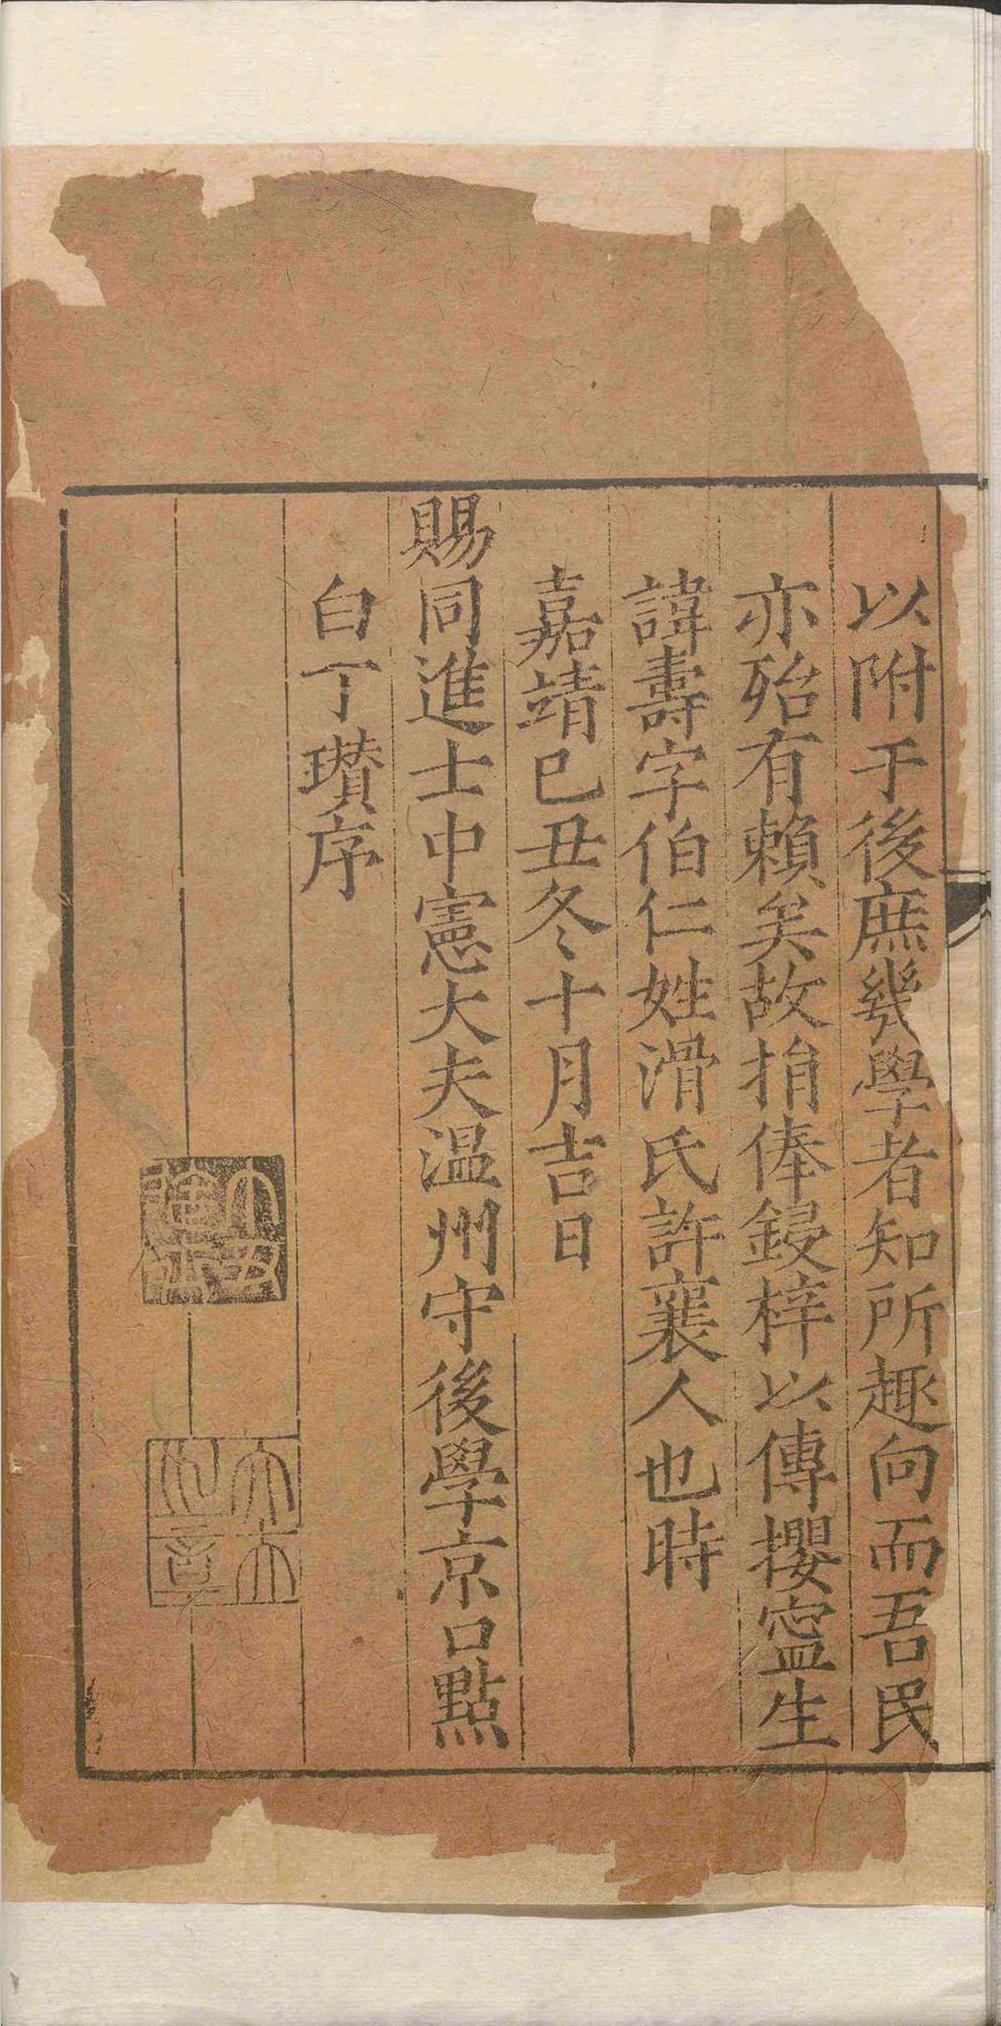 以附于後庶幾學者知所趣向而吾民
亦殆有賴矣故捐俸鋟梓以傳攖寍生
諱壽字伯仁姓滑氏許襄人也時
嘉靖己丑冬十月吉日
賜同進士中憲大夫温州守後學京口點
白丁瓉序